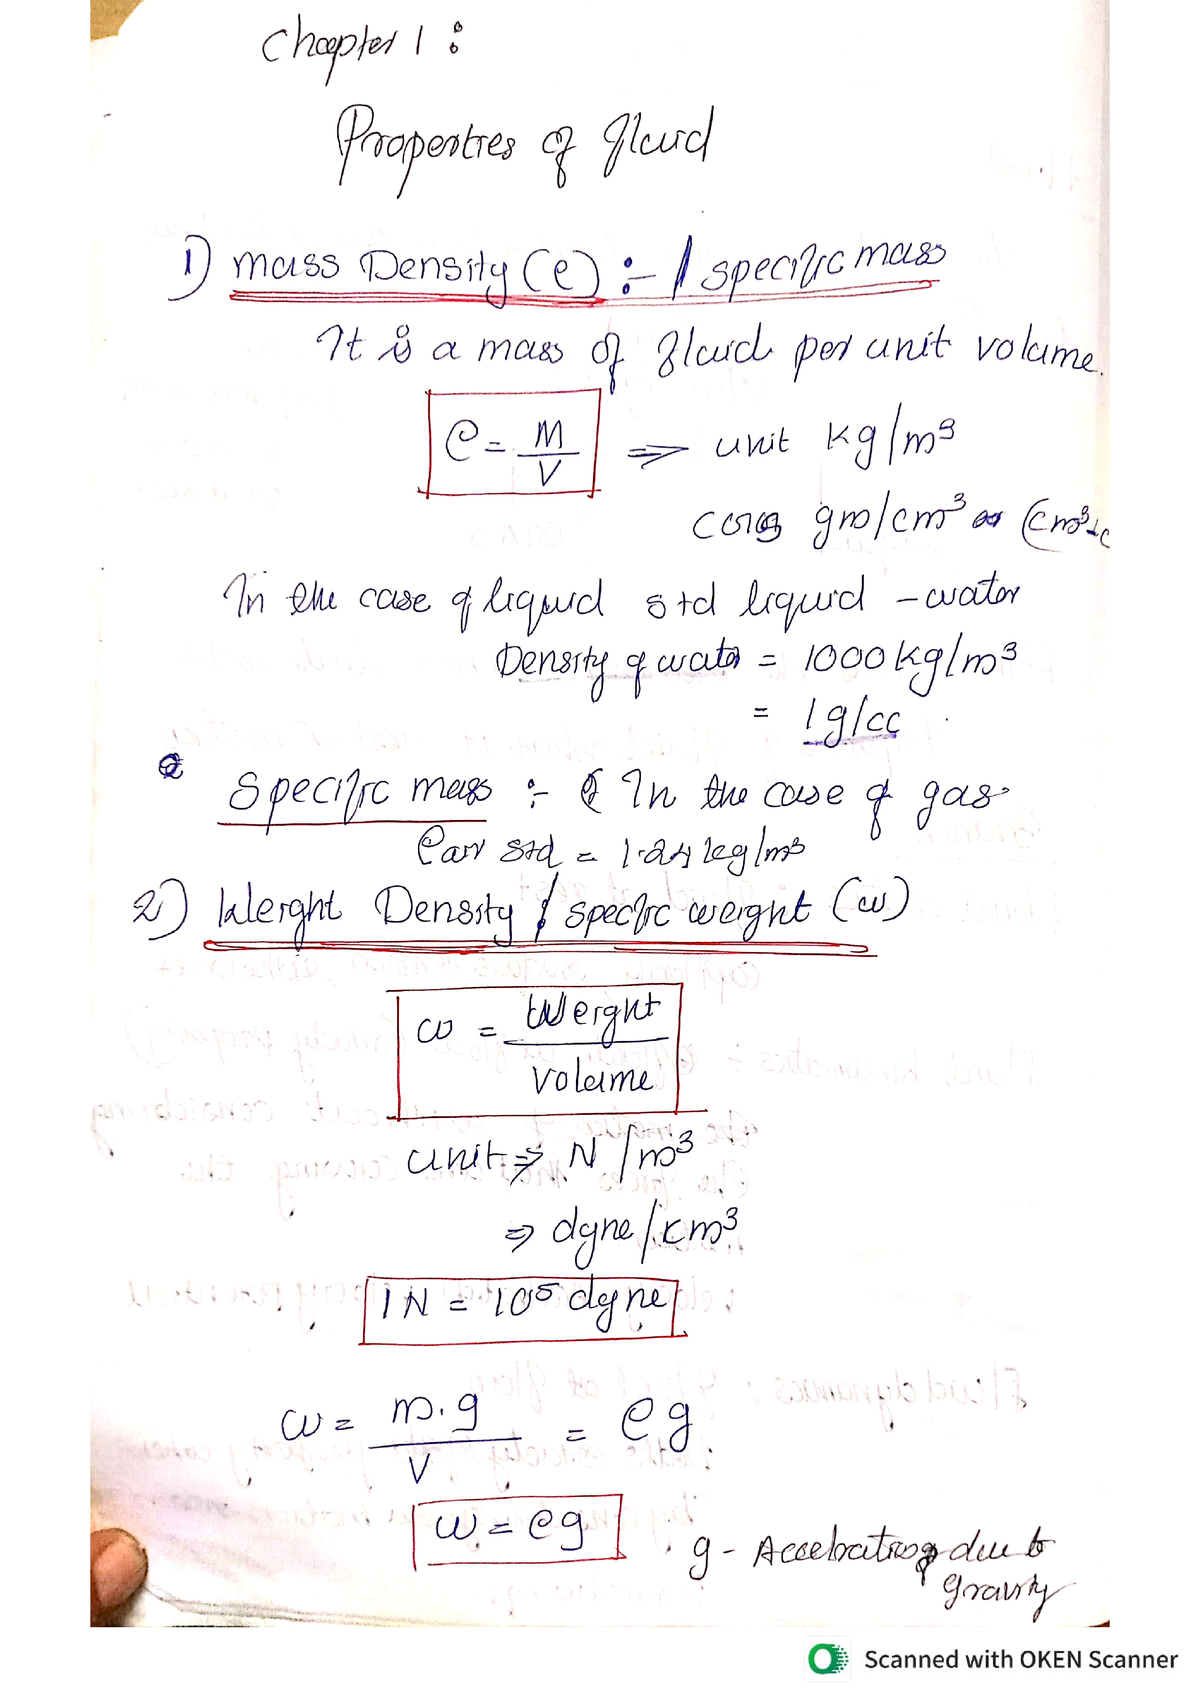 Chapter 1 :
Properties of fluid
1) mass Density (ρ) :- / specific mass
It is a mass of fluid per unit volume.
ρ = M/V ⇒ unit kg/m³
gm/cm³ or
In the case of liquid std liquid - water
Density of water = 1000 kg/m³
= 1g/cc
Specific mass :- In the case of gas
ρair std = 1.24 kg/m³
2) Weight Density / specific weight (w)
w = Weight/volume
unit ⇒ N/m³
⇒ dyne/cm³
1N = 10⁵ dyne
w = m.g/V = ρg
w = ρg
g - Acceleration due to
gravity
Scanned with OKEN Scanner